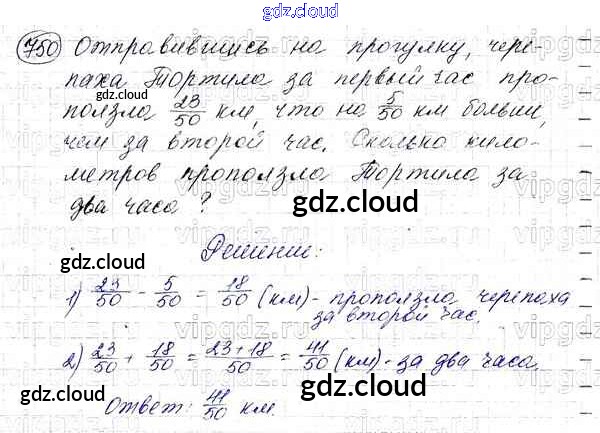 gdz.cloud
750 Отправившись на прогулку, чере-
паха Тортила за первый час про-
ползла 23/50 км, что на 5/50 км больше,
чем за второй час. Сколько кило-
метров проползла Тортила за
два часа?
gdz.cloud
Решение:
gdz.cloud
1) 23/50 - 5/50 = 18/50 (км) - проползла черепаха
за второй час.
gdz.cloud
gdz.cloud
2) 23/50 + 18/50 = 23+18/50 = 41/50 (км) - за два часа.
gdz.cloud
gdz.cloud
Ответ: 41/50 км.